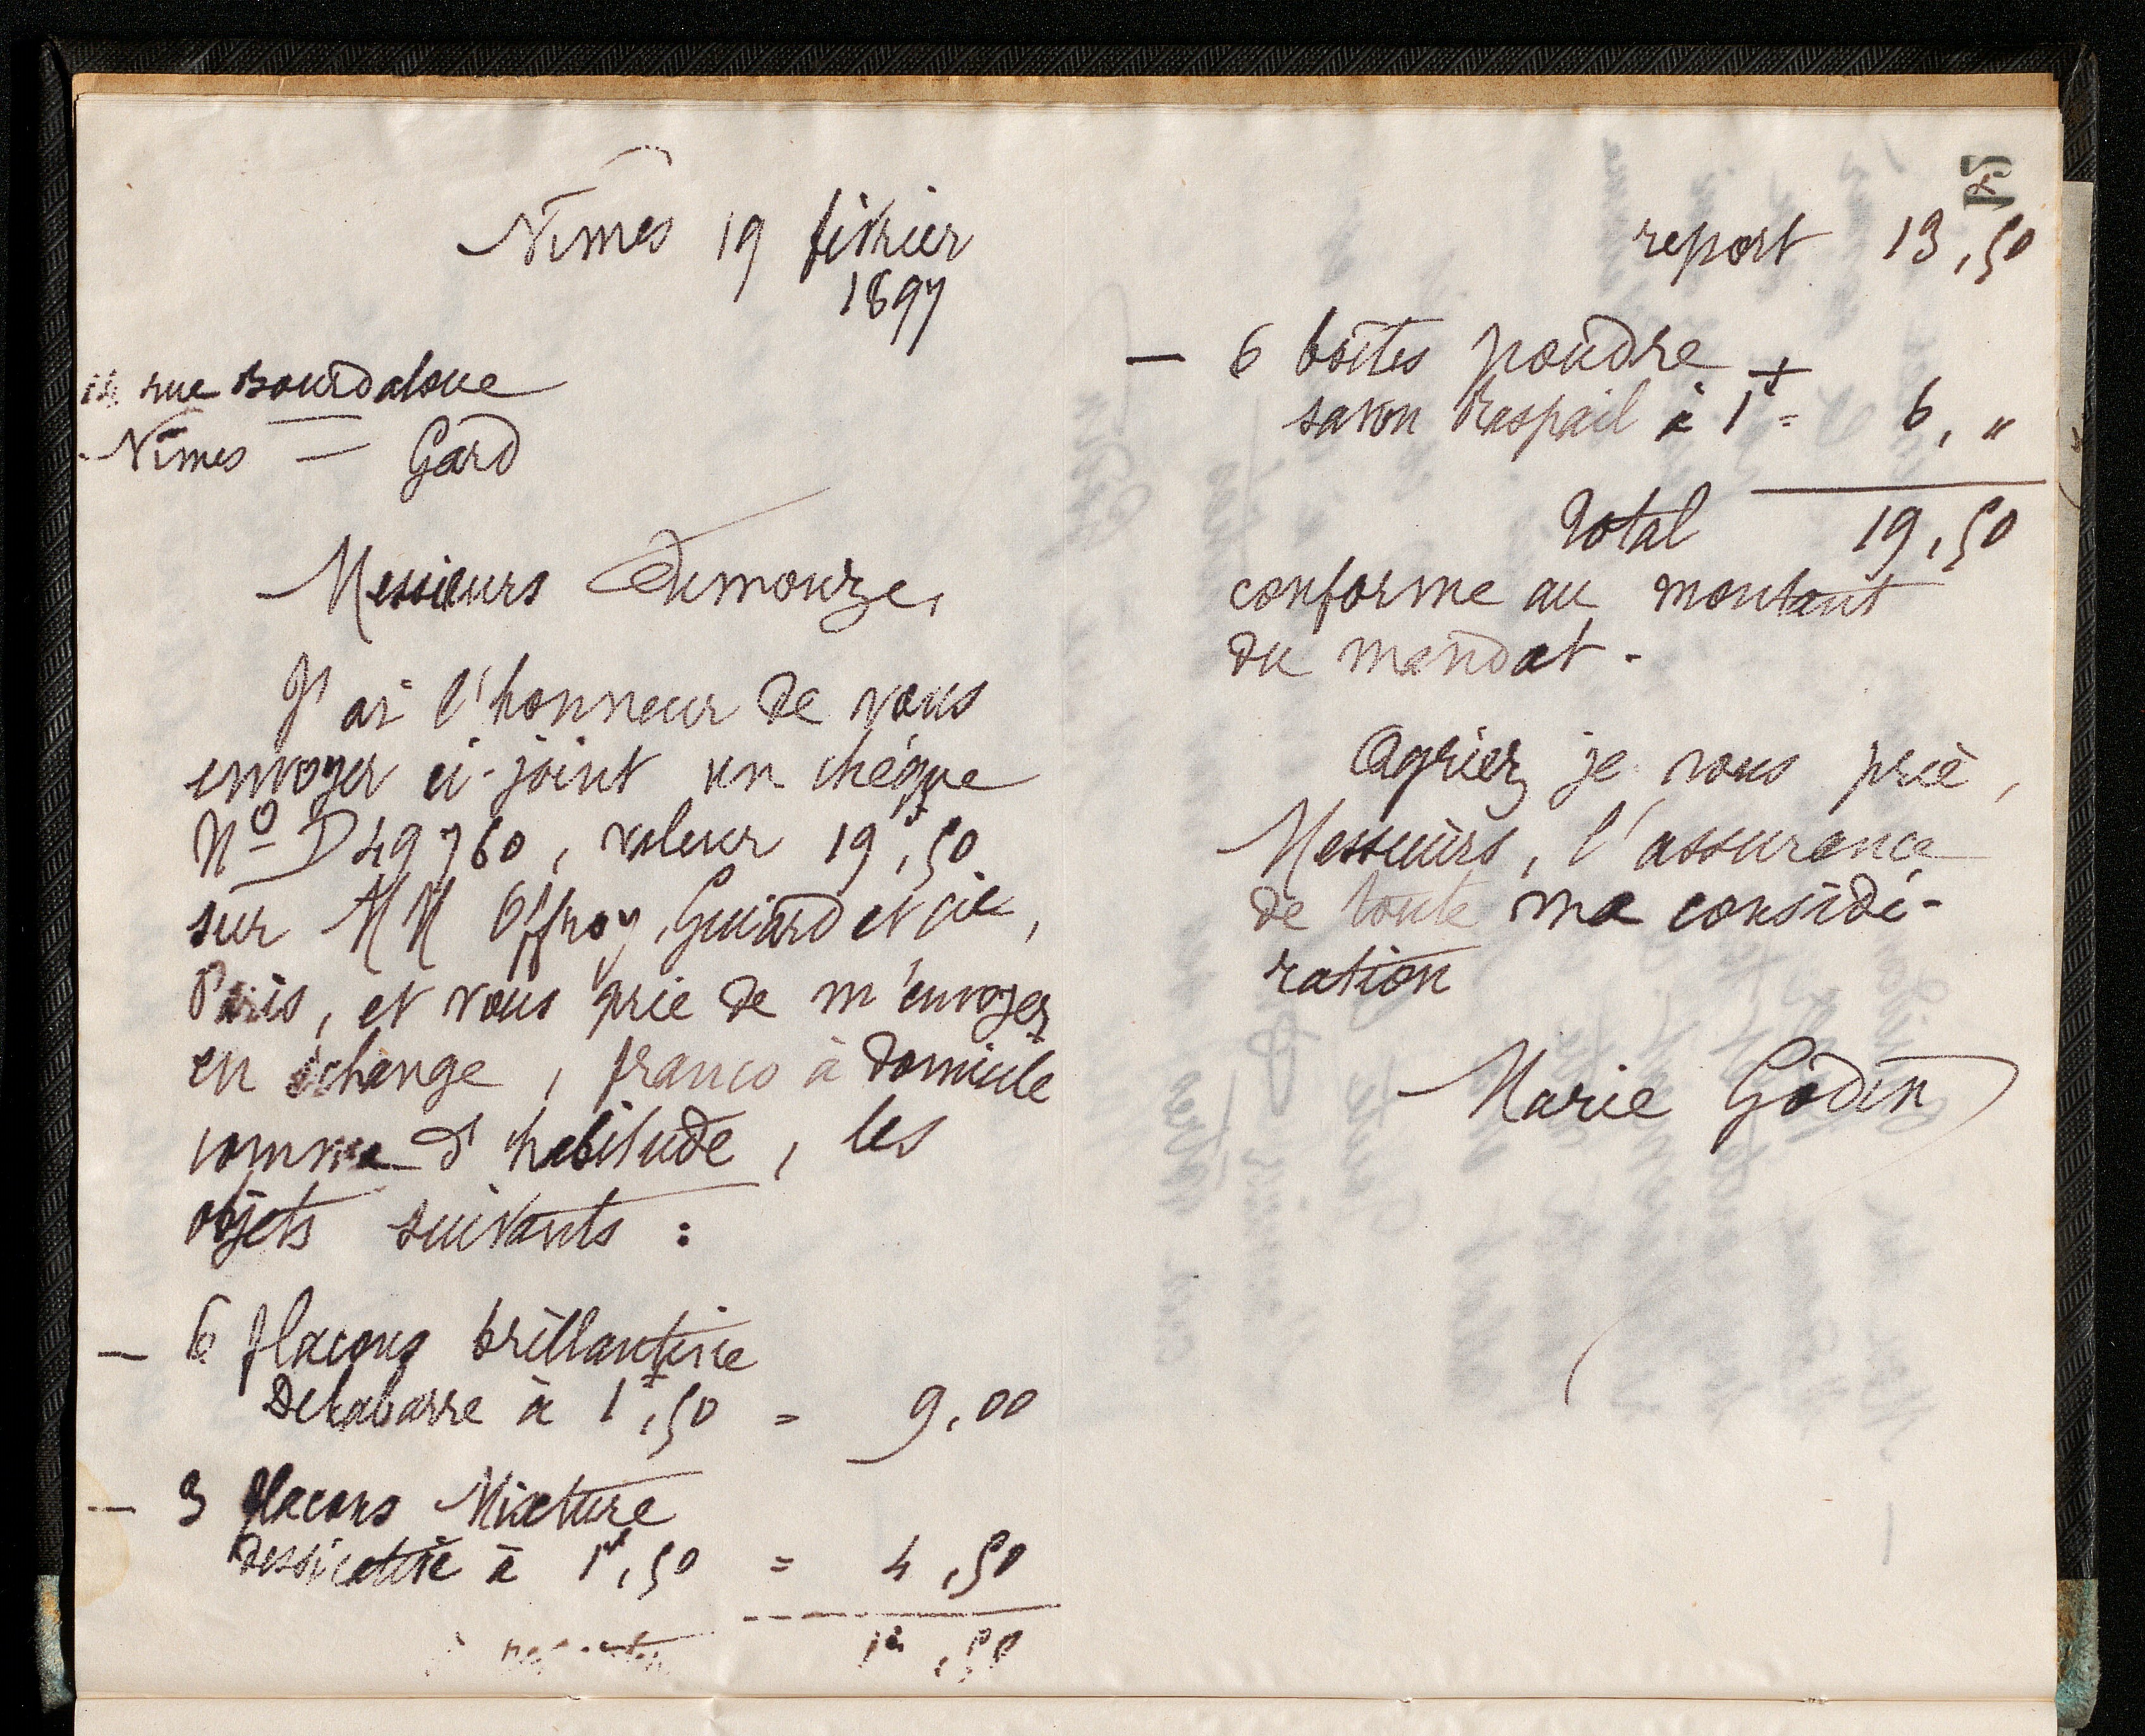 Nîmes 19 février
1897
14 rue Bourdaloue
Nîmes — Gard
Messieurs Dumouze,
J'ai l'honneur de vous
envoyer ci-joint un chèque
Nº D 49760, valeur 19f,50
sur MM Offroy, Guiard et cie,
Paris, et vous prie de m'envoyer
en échange, franco à domicile
comme d'habitude, les
objets suivants :
— 6 flacons brillantine
Delabarre à 1f,50 = 9,00
— 3 flacons Mixture
dessicative à 1f,50 = 4,50
à reporter 13,50
report 13,50
— 6 boîtes poudre +
savon Raspail à 1f = 6, "
Total 19,50
conforme au montant
du mandat.
Agréez je vous prie,
Messieurs, l'assurance
de toute ma considé-
ration
Marie Godin